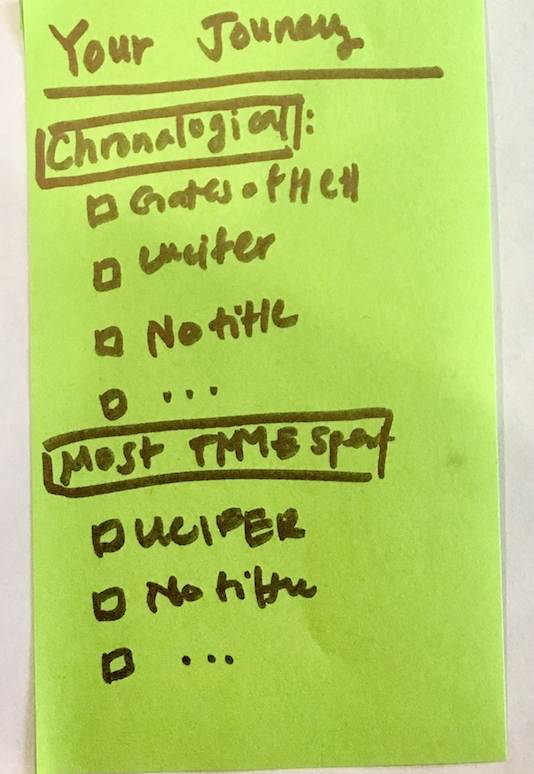 Your Jouney
Chronalogical:
Gates of Hell
Lucifer
No title
...
Most TMME Spent
LUCIFER
No title
...